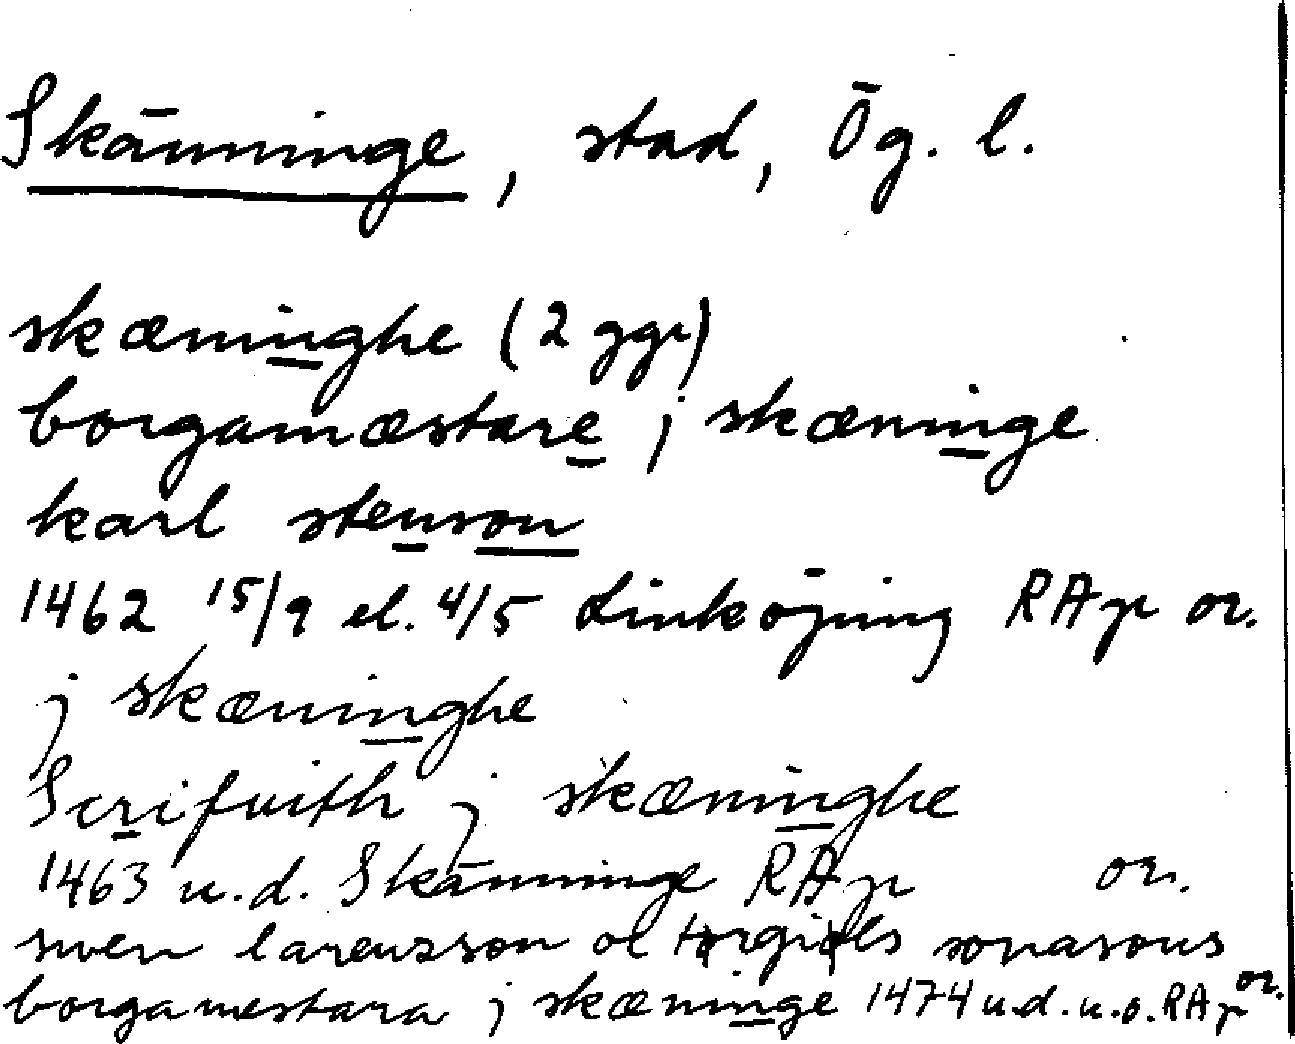 Skänninge, stad, Ög. l.
skæninghe (2 ggr)
borgamæstare j skæninge
karl stenson
1462 15/9 el. 4/5 Linköping RAp or.
j skæninghe
Scrifuith j skæninghe
1463 u.d. Skänninge RAp or.
swen larensson oc
borgamestara j skæninge 1474 u.d. u.o. RAp or.